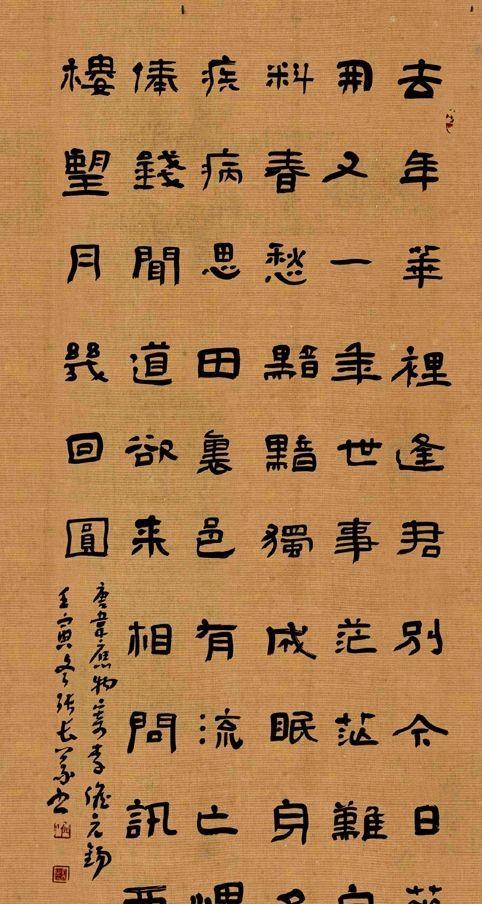 去年華裡逢君別今日花
開又一年世事茫茫難自
料春愁黯黯獨成眠身多
疾病思田裏邑有流亡愧
俸錢聞道欲来相問訊西
樓望月幾回圓
唐韋應物寄李儋元錫
壬寅冬张长义书